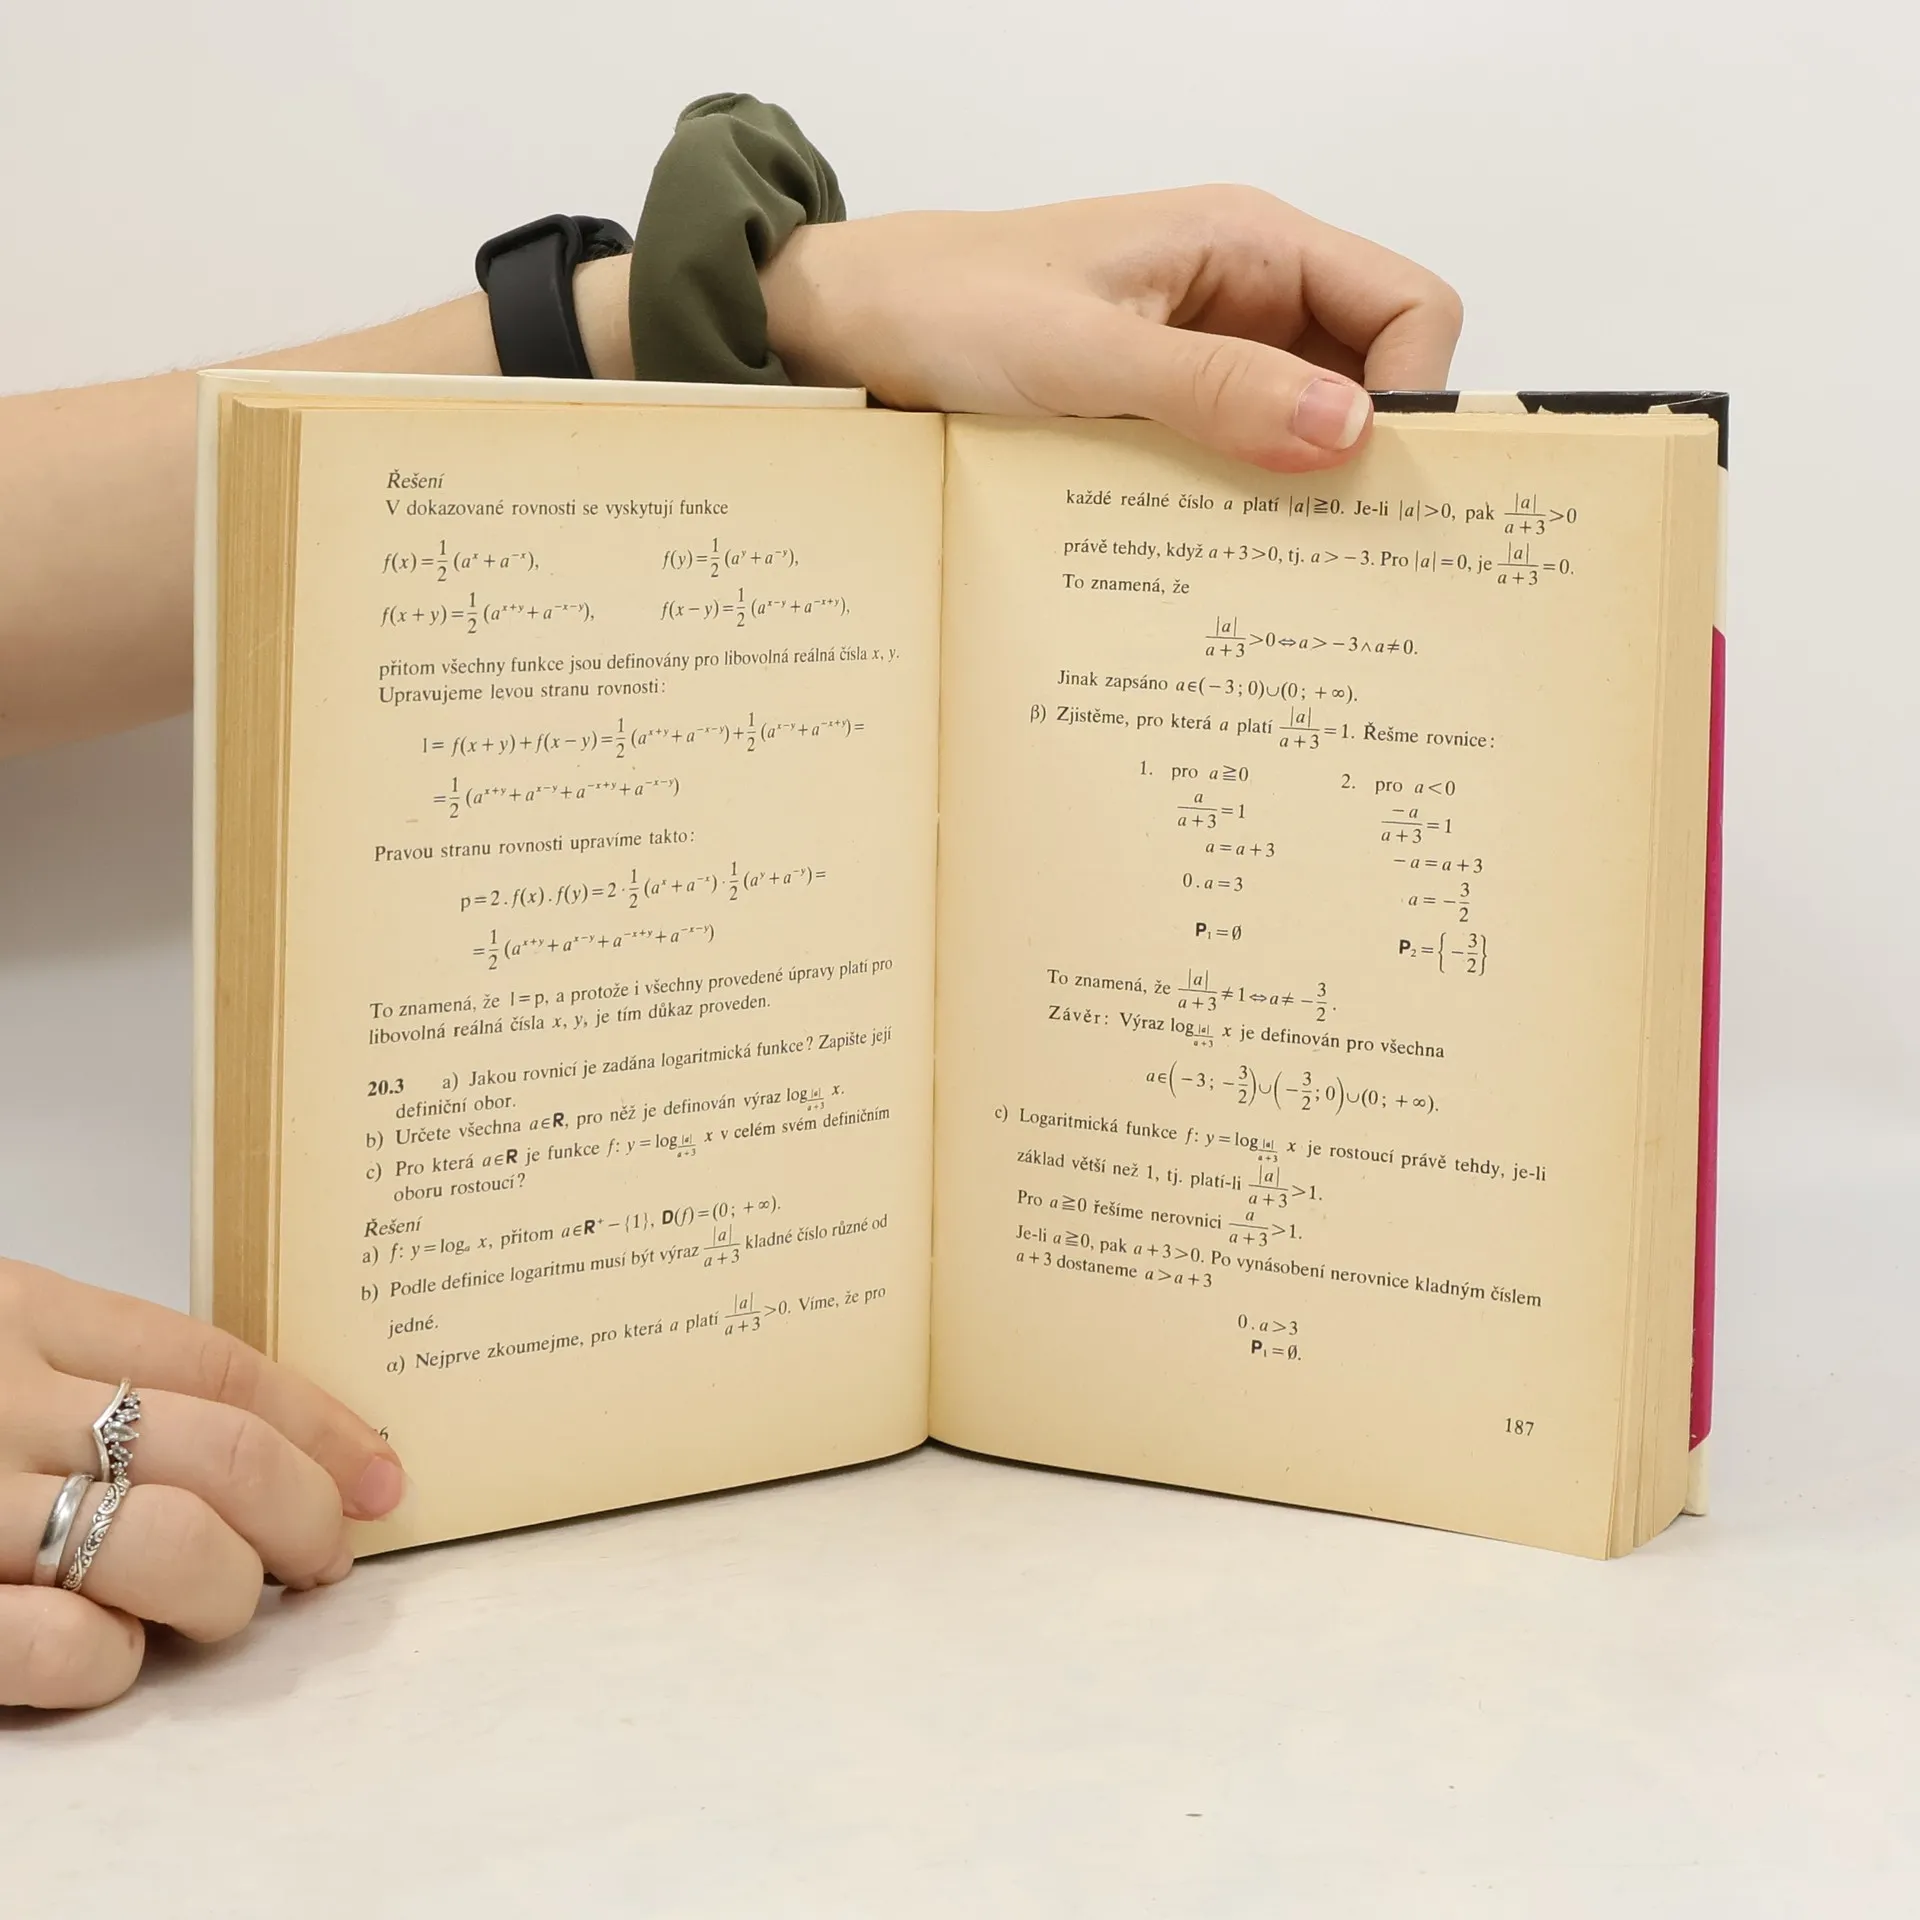 Řešení
V dokazované rovnosti se vyskytují funkce
f(x)=1/2 (a^x + a^{-x}), f(y)=1/2 (a^y + a^{-y}),
f(x+y)=1/2 (a^{x+y} + a^{-x-y}), f(x-y)=1/2 (a^{x-y} + a^{-x+y}),
přitom všechny funkce jsou definovány pro libovolná reálná čísla x, y.
Upravujeme levou stranu rovnosti:
l = f(x+y)+f(x-y)=1/2 (a^{x+y}+a^{-x-y})+1/2 (a^{x-y}+a^{-x+y})=
=1/2 (a^{x+y}+a^{x-y}+a^{-x+y}+a^{-x-y})
Pravou stranu rovnosti upravíme takto:
p=2.f(x).f(y)=2·1/2 (a^x+a^{-x})·1/2 (a^y+a^{-y})=
=1/2 (a^{x+y}+a^{x-y}+a^{-x+y}+a^{-x-y})
To znamená, že l=p, a protože i všechny provedené úpravy platí pro
libovolná reálná čísla x, y, je tím důkaz proveden.
20.3 a) Jakou rovnicí je zadána logaritmická funkce? Zapište její
definiční obor.
b) Určete všechna a∈R, pro něž je definován výraz log_{|a|/(a+3)} x.
c) Pro která a∈R je funkce f: y=log_{|a|/(a+3)} x v celém svém definičním
oboru rostoucí?
Řešení
a) f: y=log_a x, přitom a∈R^+−{1}, D(f)=(0; +∞).
b) Podle definice logaritmu musí být výraz |a|/(a+3) kladné číslo různé od
jedné.
α) Nejprve zkoumejme, pro která a platí |a|/(a+3)>0. Víme, že pro
6
každé reálné číslo a platí |a|≧0. Je-li |a|>0, pak |a|/(a+3)>0
právě tehdy, když a+3>0, tj. a>−3. Pro |a|=0, je |a|/(a+3)=0.
To znamená, že
|a|/(a+3)>0⇔a>−3∧a≠0.
Jinak zapsáno a∈(−3; 0)∪(0; +∞).
β) Zjistěme, pro která a platí |a|/(a+3)=1. Řešme rovnice:
1. pro a≧0 2. pro a<0
a/(a+3)=1 −a/(a+3)=1
a=a+3 −a=a+3
0.a=3 a=−3/2
P₁=∅ P₂={−3/2}
To znamená, že |a|/(a+3)≠1⇔a≠−3/2.
Závěr: Výraz log_{|a|/(a+3)} x je definován pro všechna
a∈(−3; −3/2)∪(−3/2; 0)∪(0; +∞).
c) Logaritmická funkce f: y=log_{|a|/(a+3)} x je rostoucí právě tehdy, je-li
základ větší než 1, tj. platí-li |a|/(a+3)>1.
Pro a≧0 řešíme nerovnici a/(a+3)>1.
Je-li a≧0, pak a+3>0. Po vynásobení nerovnice kladným číslem
a+3 dostaneme a>a+3
0.a>3
P₁=∅.
187